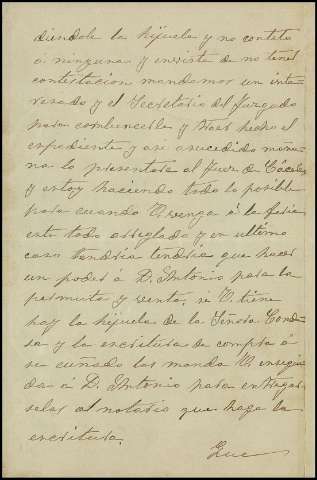 diendole la hijuela y no contestó
á ninguna y en vista de no tener
contestacion mandamos un inte-
resado y el Secretario del Juzgado
para combencerle y traer hecho el
espediente y asi a sucedido maña-
na lo presentara al Juez de Cáceres
y estoy haciendo todo lo posible
para cuando V. venga á la feria
este todo arreglado y en ultimo
caso tendria tendria que hacer
un poder á D. Antonio para la
permuta y venta, si V. tiene
hay la hijuela de la Señora Conde-
sa y la escritura de compra á
su cuñado las manda V. en segui-
da á D. Antonio para entregar-
selas al notario que haga la
escritura.